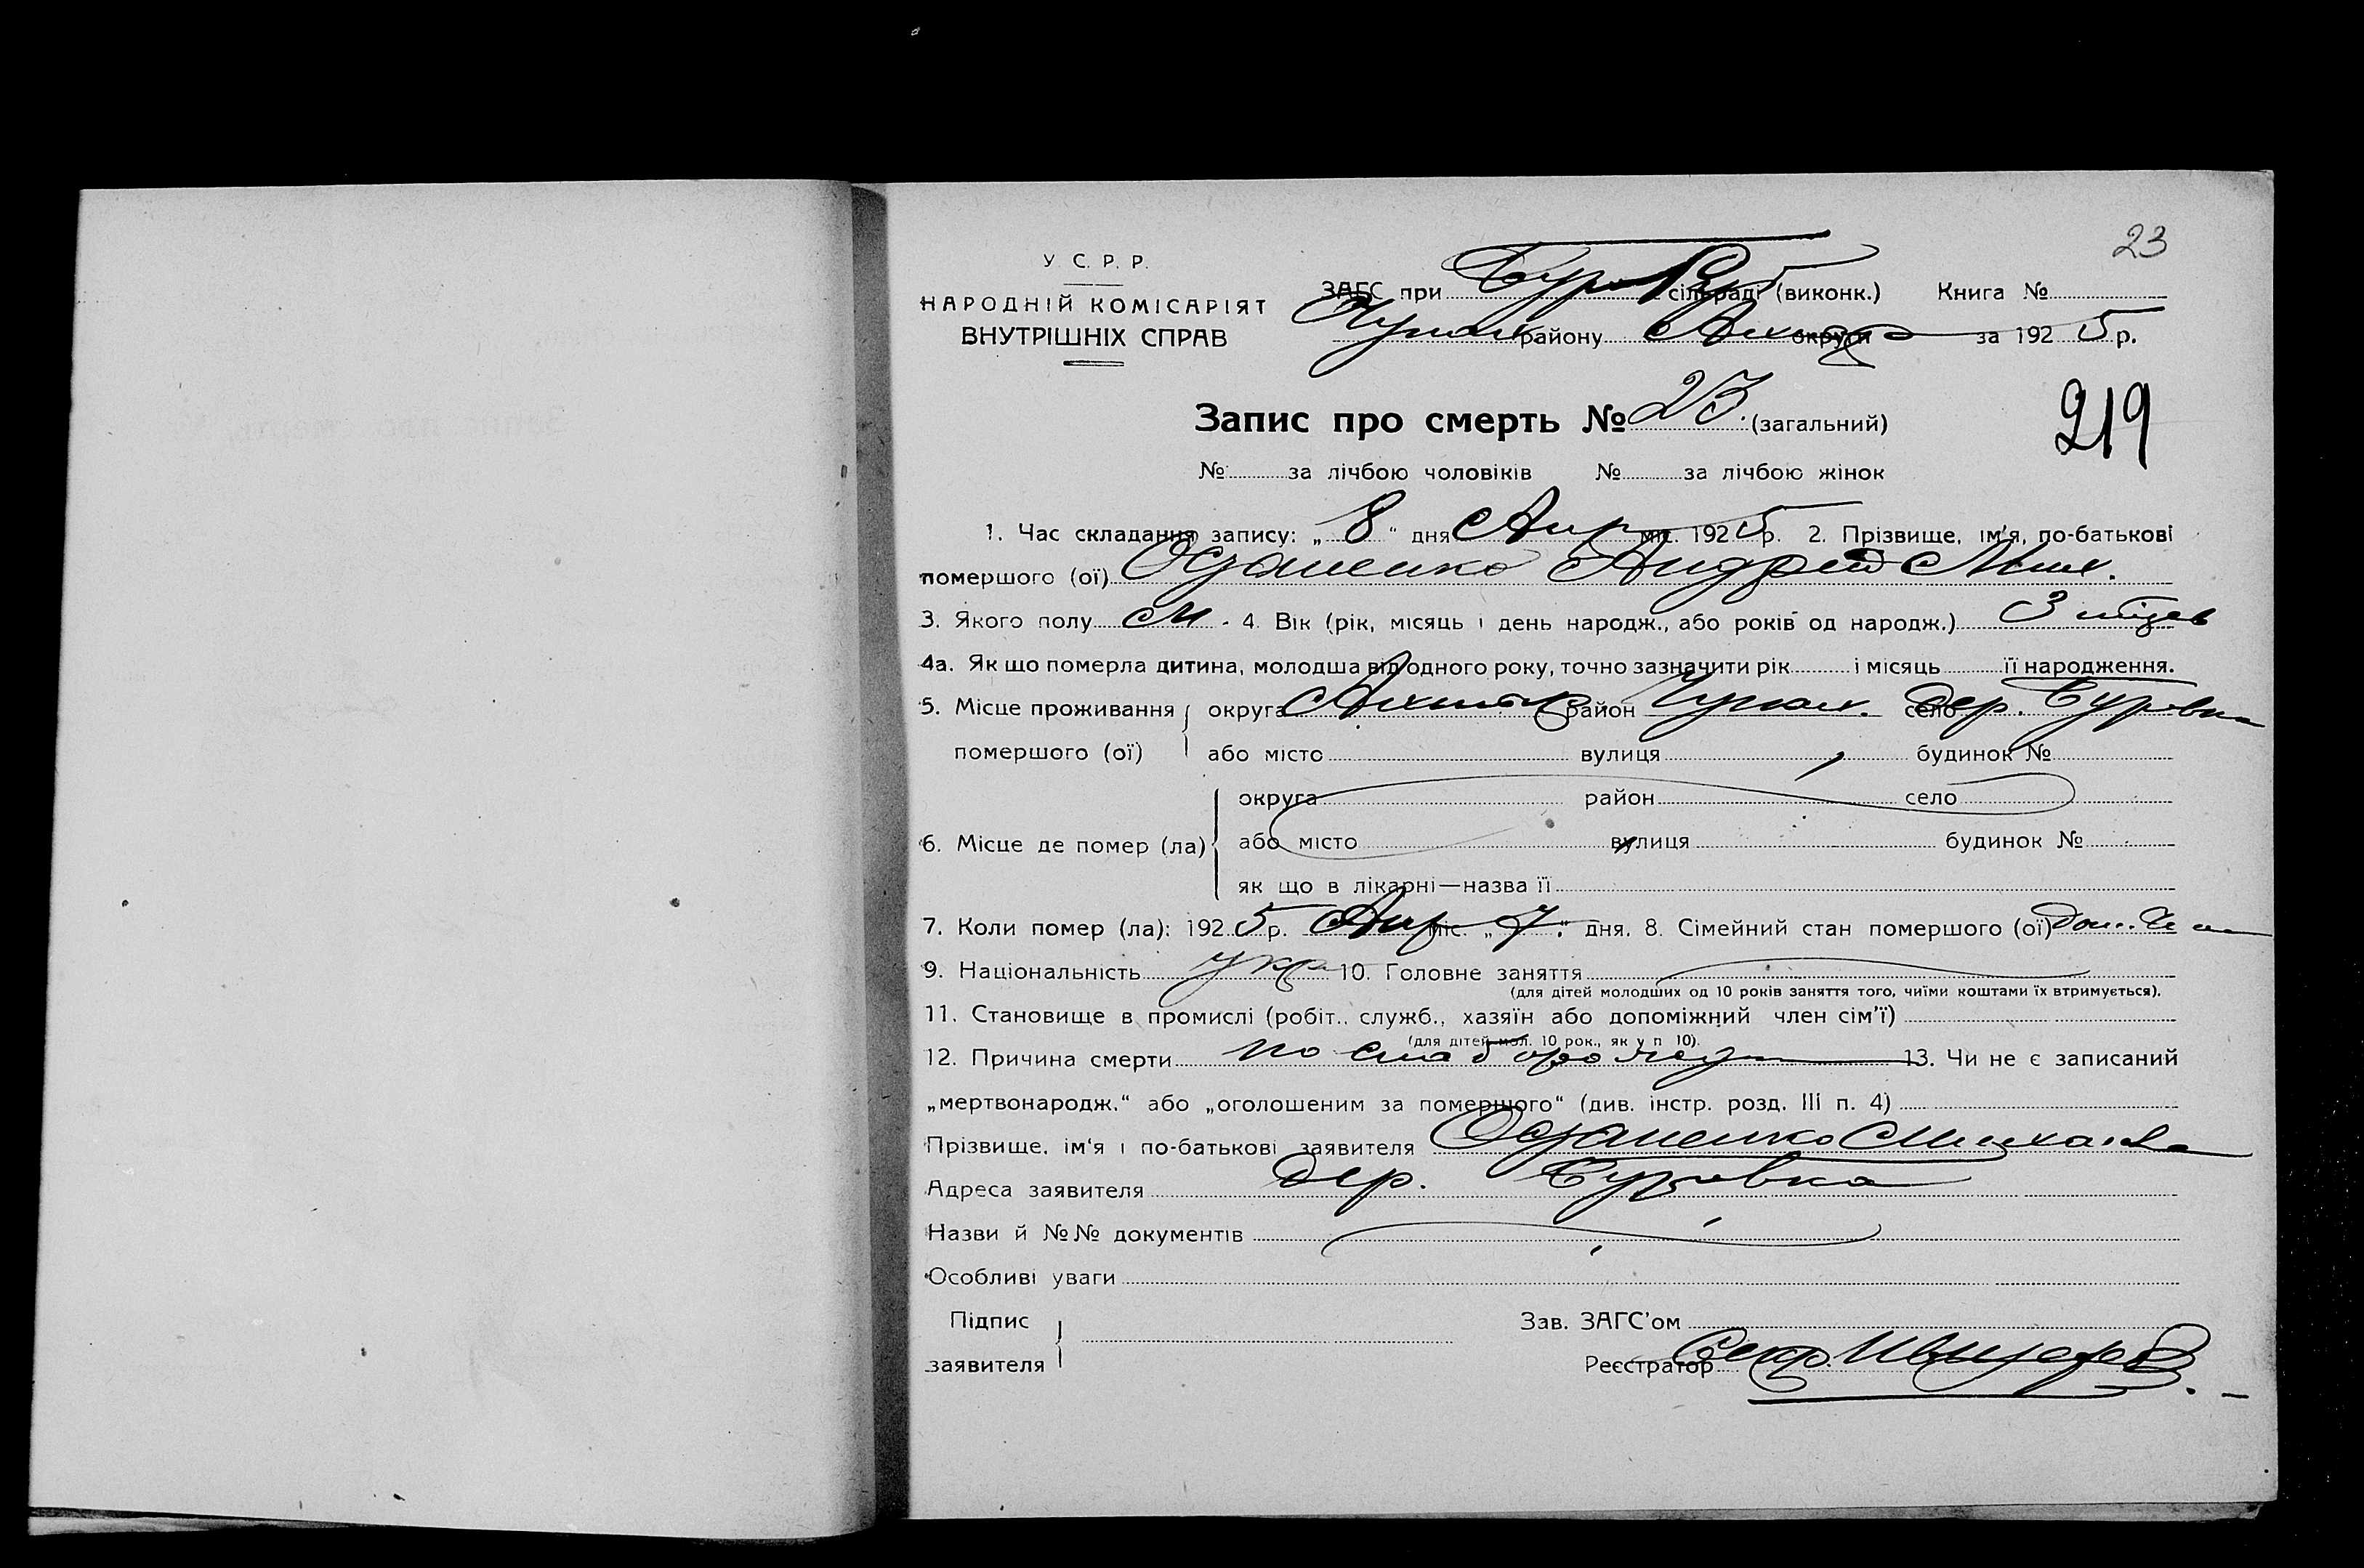 23
У. С. Р. Р.
НАРОДНІЙ КОМІСАРІЯТ
ВНУТРІШНІХ СПРАВ
ЗАГС при сільраді (виконк.) Книга №
району округи за 1925 р.
Запис про смерть № 23. (загальний)
219
№ за лічбою чоловіків № за лічбою жінок
1. Час складання запису: „ 8 “ дня Апр міс. 1925 р. 2. Прізвище, ім'я, по-батькові
помершого (ої) Андрей Мих.
3. Якого полу М. 4. Вік (рік, місяць і день народж., або років од народж.) 3
4а. Як що померла дитина, молодша від одного року, точно зазначити рік і місяць її народження.
5. Місце проживання округа район село дер. Буровка
помершого (ої) або місто вулиця будинок №
округа район село
6. Місце де помер (ла) або місто вулиця будинок №
як що в лікарні—назва її
7. Коли помер (ла): 1925 р. Апр міс. „ 7. “ дня. 8. Сімейний стан помершого (ої)
9. Національність укр 10. Головне заняття
(для дітей молодших од 10 років заняття того, чиїми коштами їх втримується).
11. Становище в промислі (робіт., служб., хазяїн або допоміжний член сім'ї)
(для дітей мол. 10 рок., як у п 10).
12. Причина смерти 13. Чи не є записаний
„мертвонародж.“ або „оголошеним за помершого“ (див. інстр. розд. III п. 4)
Прізвище, ім'я і по-батькові заявителя
Адреса заявителя дер. Буровка
Назви й №№ документів
Особливі уваги
Підпис Зав. ЗАГС'ом
заявителя Реєстратор Секр.